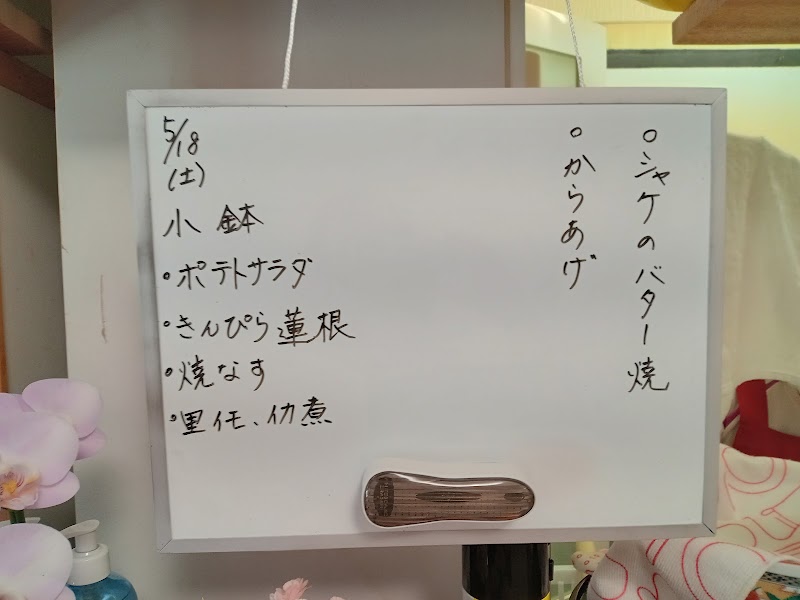 ○シャケのバター焼
○からあげ
5/18
(土)
小鉢
・ポテトサラダ
・きんぴら蓮根
・焼なす
・里イモ、イカ煮